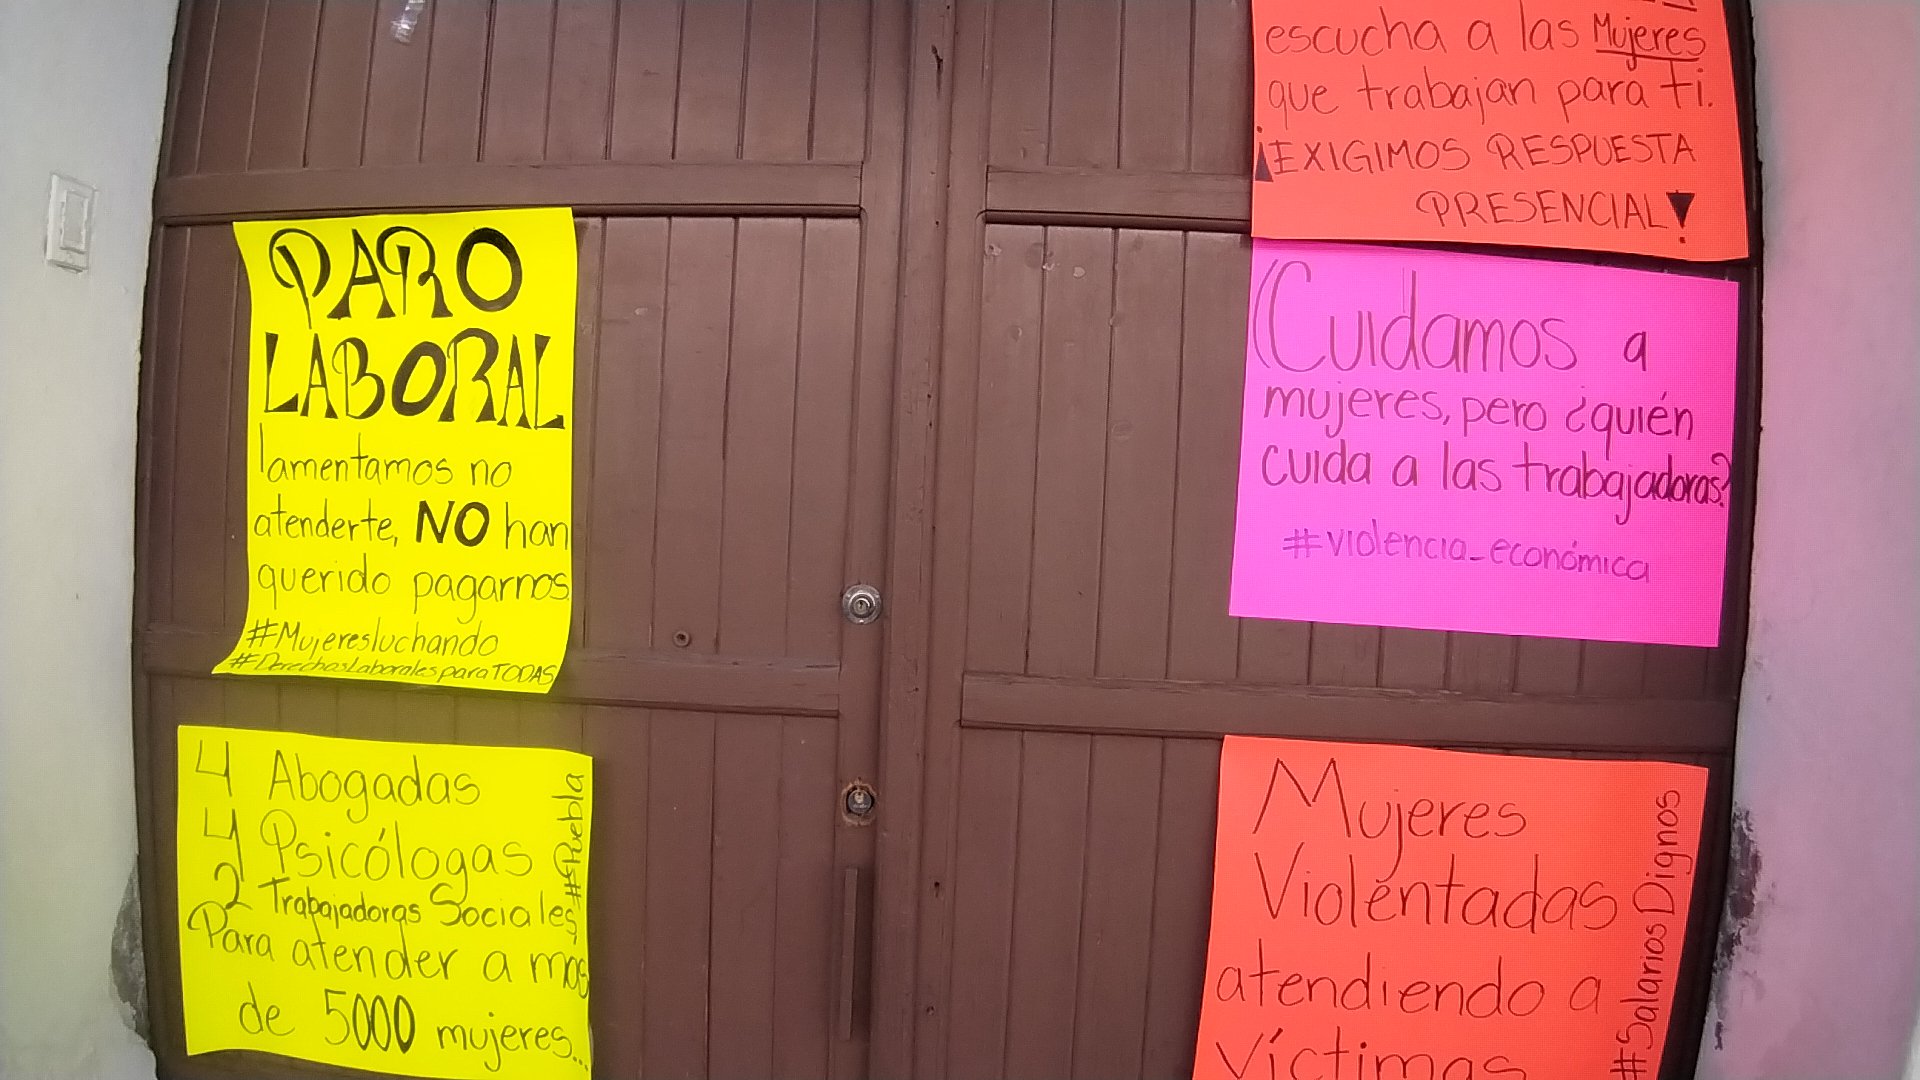 PARO
LABORAL
lamentamos no
atenderte, NO han
querido pagarnos.
#Mujeresluchando
#DerechosLaboralesparaTODAS
4 Abogadas
4 Psicólogas
2 Trabajadoras Sociales
Para atender a mas
de 5000 mujeres...
#Puebla
escucha a las Mujeres
que trabajan para ti.
¡EXIGIMOS RESPUESTA
PRESENCIAL!
Cuidamos a
mujeres, pero ¿quién
cuida a las trabajadoras?
#violencia_económica
Mujeres
Violentadas
atendiendo a
Víctimas
#SalariosDignos